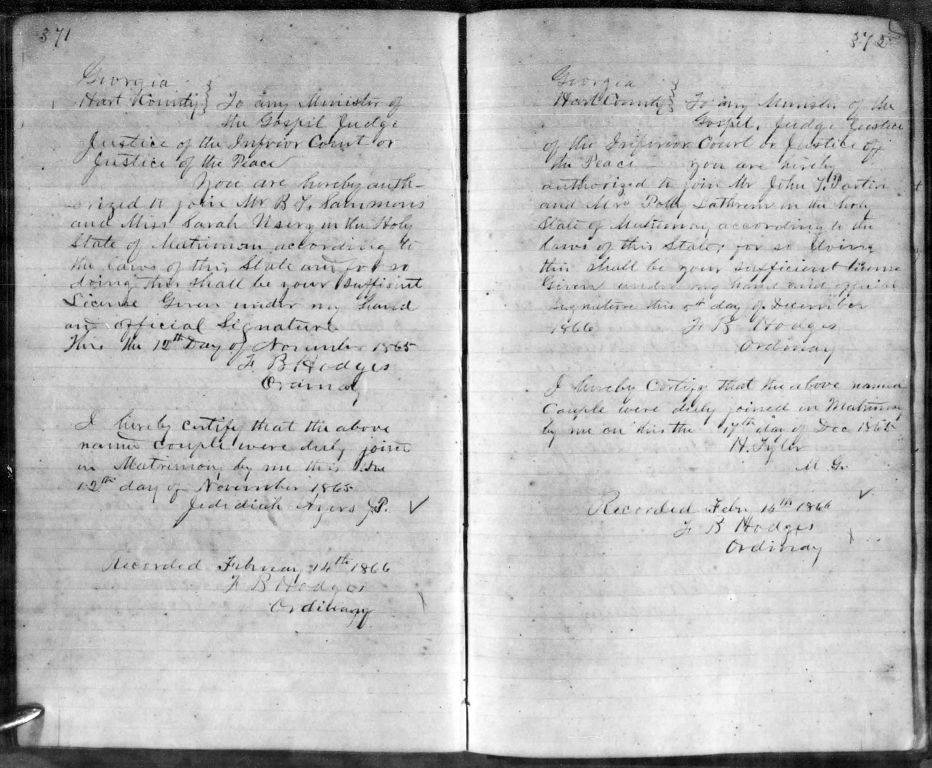 371
Georgia
Hart County } To any Minister of
the Gospil Judge
Justice of the Infrior Court or
Justice of the Peace
You are hereby auth-
orized to join Mr B. T. Sammons
and Miss Sarah in the Holy
State of Matrimon according to
the laws of this State and for so
doing this shall be your Sufficient
License Given under my hand
and official Signature
This the 12th Day of November 1865
F B Hodges
Ordinary
I hereby certify that the above
named couple were duly joined
in Matrimony by me this the
12th day of November 1865
Jedidiah Ayers J.P.
Recorded February 14th 1866
F B Hodges
Ordinary
372
Georgia
Hart County } To any Minister of the
Gospel, Judge Justice
of the Inferior Court or Justice off
the Peace You are hereby
authorized to join Mr John T.
and Mrs Polly in the holy
State of Matrimony according to the
laws of this State, for so doing
this shall be your sufficient license
Given under my hand and official
Signature this day of December
1866 F B Hodges
Ordinary
I hereby Certify that the above named
Couple were duly joined in Matrimony
by me on this the 17th day of Dec 1865
H. Tyler
M. G.
Recorded Febr 14th 1866
F B Hodges
Ordinary